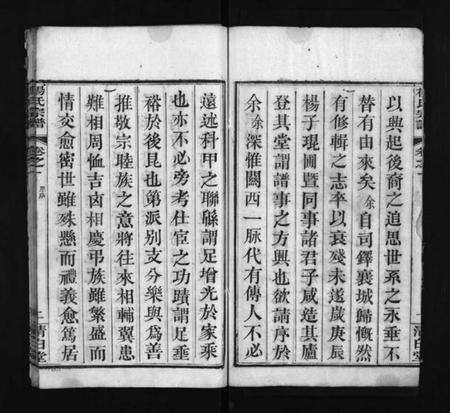 以興起後裔之追思世系之永垂不
替有由來矣余自司鐸襄城歸慨然
有修輯之志卒以衰殘未遂歲庚辰
楊子現圃暨同事諸君子咸造其廬
登其堂謂譜事之方興也欲請序於
余余深惟關西一脉代有傳人不必
遠述科甲之聯緜謂足增光於家乘
也亦不必旁考仕宦之功蹟謂足垂
裕於後昆也第派别支分樂與爲善
推敬宗睦族之意將往來相輔翼患
難相周恤吉凶相慶弔族雖繁盛而
情交愈密世雖殊懸而禮義愈篤居
楊氏宗譜
卷之一
清白堂